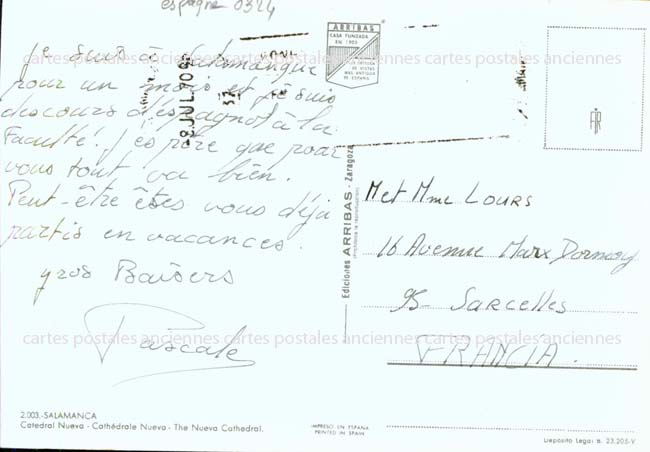 espagne 0324
Je suis à Salamanque
pour un mois et je suis
des cours d'espagnol à la
Faculté! J'espère que pour
vous tout va bien.
Peut-être êtes vous déjà
partis en vacances.
gros Baisers
Pascale
ARRIBAS
CASA FUNDADA
EN 1905
DE VISTAS
MAS ANTIGUA
DE ESPAÑA
-8 JUL 70
cartes postales anciennes cartes postales anciennes
Ediciones ARRIBAS - Zaragoza
M et Mme LOURS
16 Avenue Marx Dormoy
95- Sarcelles
FRANCIA.
cartes postales anciennes cartes postales anciennes
2.003.-SALAMANCA
Catedral Nueva - Cathédrale Nueva - The Nueva Cathedral.
IMPRESO EN ESPAÑA
PRINTED IN SPAIN
Depósito Legal B. 23.205-V